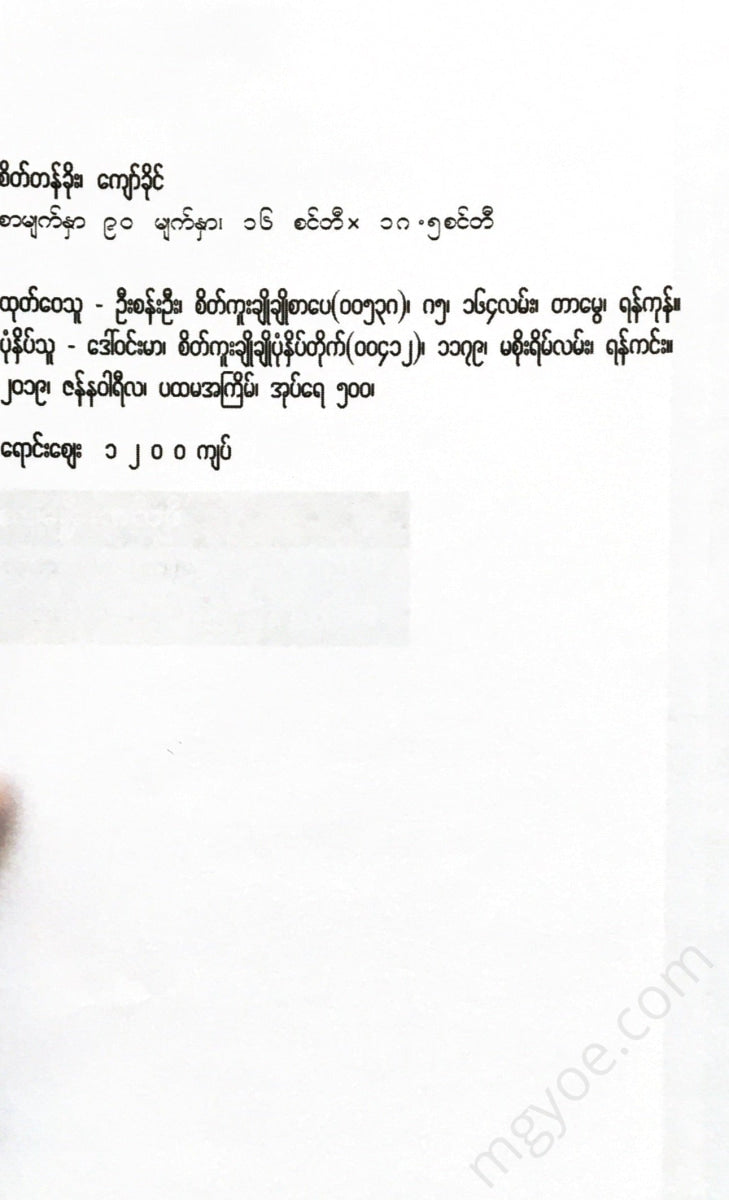 စိတ်တန်ခိုး၊ ကျော်ခိုင်
စာမျက်နှာ ၉၀ မျက်နှာ၊ ၁၆ စင်တီ× ၁၈.၅စင်တီ
ထုတ်ဝေသူ - ဦးစန်းဦး၊ စိတ်ကူးချိုချိုစာပေ(၀၀၅၃၈)၊ ၈၅၊ ၁၆၄လမ်း၊ တာမွေ၊ ရန်ကုန်။
ပုံနှိပ်သူ - ဒေါ်ဝင်းမာ၊ စိတ်ကူးချိုချိုပုံနှိပ်တိုက်(၀၀၄၁၂)၊ ၁၁၇၉၊ မစိုးရိမ်လမ်း၊ ရန်ကင်း။
၂၀၁၉၊ ဇန်နဝါရီလ၊ ပထမအကြိမ်၊ အုပ်ရေ ၅၀၀၊
ရောင်းဈေး ၁ ၂ ၀ ၀ ကျပ်
mgyoe.com